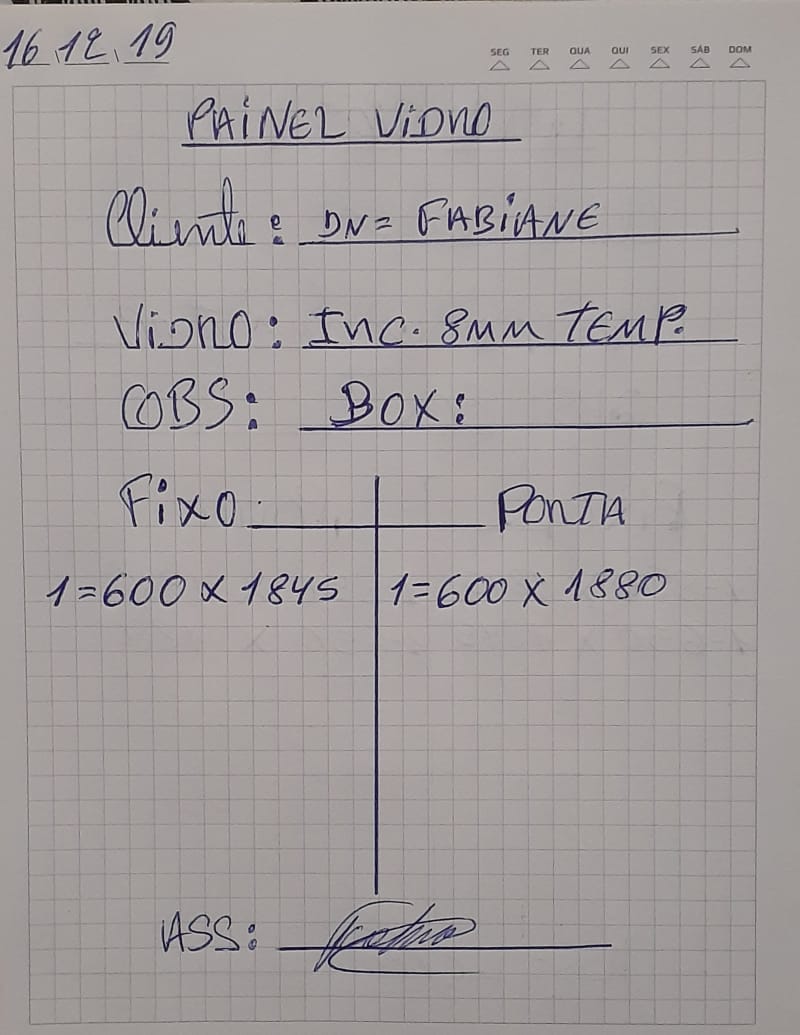 16.12.19
SEG TER QUA QUI SEX SÁB DOM
PAINEL VIDRO
Cliente: DN= FABIANE
VIDRO: INC. 8MM TEMP.
OBS: BOX:
FIXO PORTA
1=600 X 1845 1=600 X 1880
ASS: